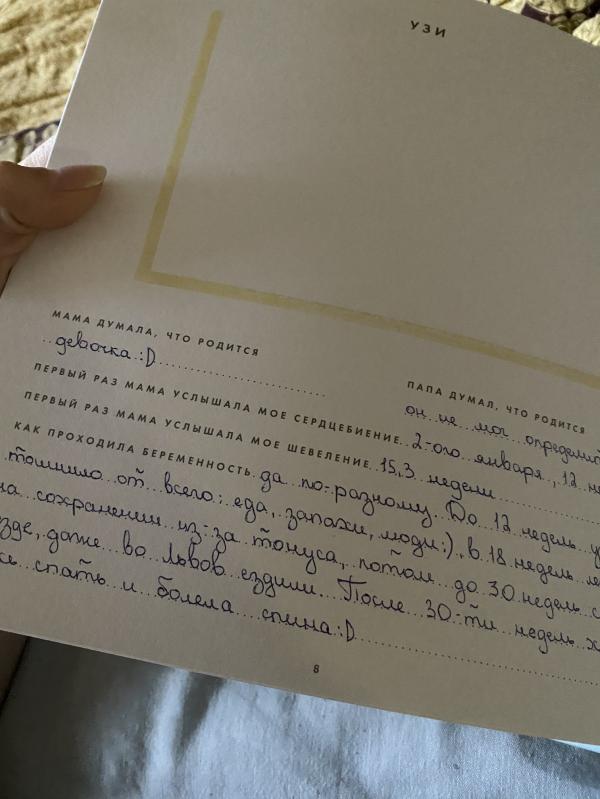 УЗИ
МАМА ДУМАЛА, ЧТО РОДИТСЯ
девочка :D
ПАПА ДУМАЛ, ЧТО РОДИТСЯ
он не мог
ПЕРВЫЙ РАЗ МАМА УСЛЫШАЛА МОЕ СЕРДЦЕБИЕНИЕ 2-ого января, 12
ПЕРВЫЙ РАЗ МАМА УСЛЫШАЛА МОЕ ШЕВЕЛЕНИЕ 15,3 недели
КАК ПРОХОДИЛА БЕРЕМЕННОСТЬ да по-разному. До 12 недель
тошнило от всего: еда, запахи, люди:), в 18 недель
на сохранении из-за тонуса, потом до 30 недель
даже во Львов ездили. После 30-ти недель
спать и болела спина :D
8